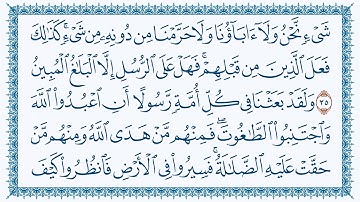 شَىْءٍ نَّحْنُ وَلَآ ءَابَآؤُنَا وَلَا حَرَّمْنَا مِن دُونِهِۦ مِن شَىْءٍ ۚ كَذَٰلِكَ
فَعَلَ ٱلَّذِينَ مِن قَبْلِهِمْ ۚ فَهَلْ عَلَى ٱلرُّسُلِ إِلَّا ٱلْبَلَٰغُ ٱلْمُبِينُ
٣٥ وَلَقَدْ بَعَثْنَا فِى كُلِّ أُمَّةٍ رَّسُولًا أَنِ ٱعْبُدُوا۟ ٱللَّهَ
وَٱجْتَنِبُوا۟ ٱلطَّٰغُوتَ ۖ فَمِنْهُم مَّنْ هَدَى ٱللَّهُ وَمِنْهُم مَّنْ
حَقَّتْ عَلَيْهِ ٱلضَّلَٰلَةُ ۚ فَسِيرُوا۟ فِى ٱلْأَرْضِ فَٱنظُرُوا۟ كَيْفَ